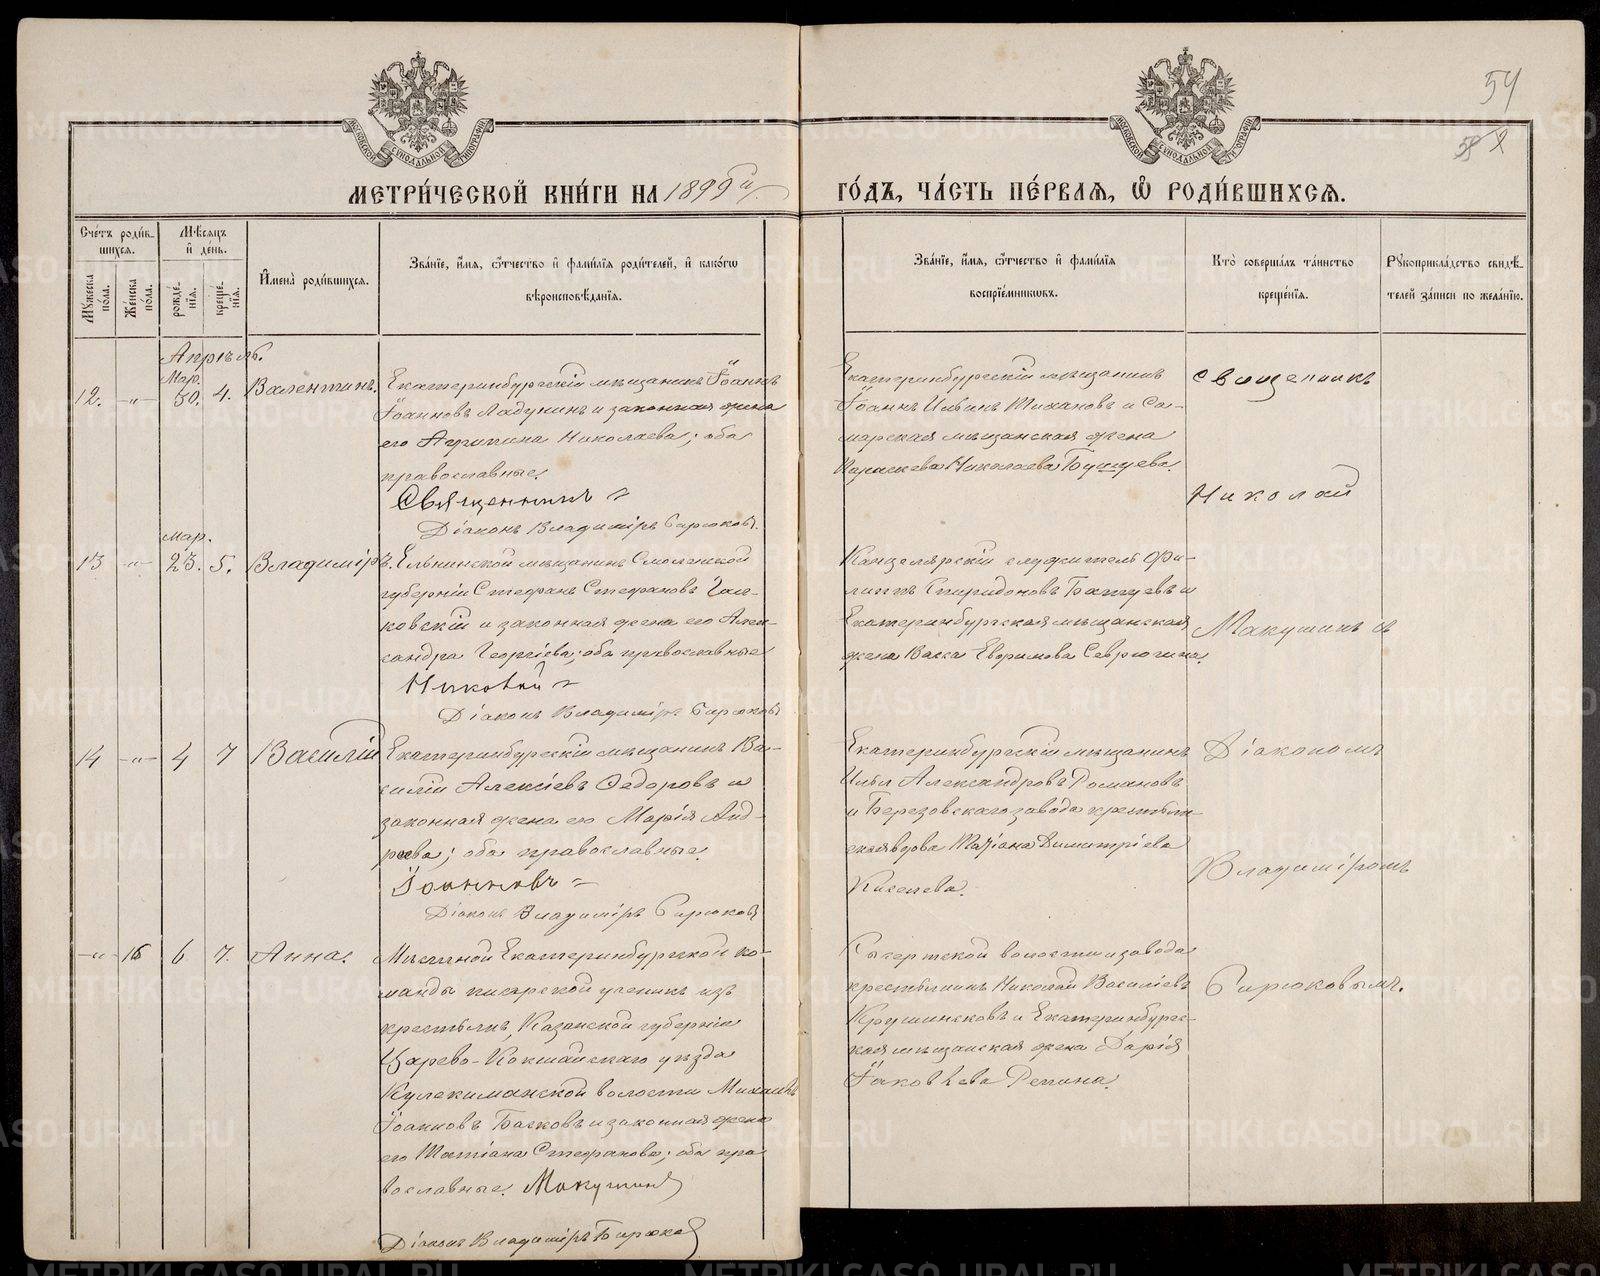 54
МЕТРИ́ЧЕСКОЙ КНИ́ГИ НА 1899й
ГО́ДЪ, ЧА́СТЬ ПЕ́РВАЯ, Ѽ РОДИ́ВШИХСЯ.
Сче́тъ роди́в-
шихся.
Мѣ́сяцъ
и҆ де́нь.
Мꙋ́жеска по́ла.
Же́нска по́ла.
рожде́-
нїя.
креще́-
нїя.
И҆мена̀ роди́вшихся.
Зва́нїе, и҆́мя, ѻ҆́тчество и҆ фами́лїя роди́телей, и҆ како́гѡ
вѣроисповѣ́данїя.
Зва́нїе, и҆́мя, ѻ҆́тчество и҆ фами́лїя
воспрїе́мниковъ.
Кто̀ соверша́лъ та́инство
креще́нїя.
Рꙋкоприкла́дство свидѣ́-
телей за́писи по жела́нїю.
Апрѣль.
12. -„- Мар. 30. 4. Валентинъ.
Екатеринбургскій мѣщанинъ Іоаннъ
Іоанновъ Ладукинъ и законная жена
его Агрипина Николаева; оба
православные.
Священникъ
Діаконъ Владиміръ Бирюковъ.
Екатеринбургскій мѣщанинъ
Іоаннъ Ильинъ Тихановъ и Са-
марская мѣщанская жена
Параскева Николаева Бушуева.
Священникъ
Николай
13 -„- Мар. 23. 5. Владиміръ.
Ельнинской мѣщанинъ Смоленской
губерніи Стефанъ Стефановъ
ковскій и законная жена его Алек-
сандра Георгіева; оба православные
Николай
Діаконъ Владиміръ Бирюковъ
Канцелярскій служитель Фи-
липпъ Спиридоновъ и
Екатеринбургская мѣщанская
жена Васса Евфимова Севрюгина.
Макушинъ съ
14 -„- 4 7 Василій
Екатеринбургскій мѣщанинъ Ва-
силій Алексіевъ Ѳедоровъ и
законная жена его Марія Анд-
реева; оба православные.
Іоанновъ
Діаконъ Владиміръ Бирюковъ
Екатеринбургскій мѣщанинъ
Илья Александровъ Романовъ
и Березовскаго завода крестьян-
ская вдова Татіана Димитріева
Киселева.
Діакономъ
Владиміромъ
-„- 15 6 7. Анна.
Мѣстной Екатеринбургской ко-
манды писарской ученикъ изъ
крестьянъ, Казанской губерніи
Царево-Кокшайскаго уѣзда
Кулекиманской волости Михаилъ
Іоанновъ и законная жена
его Татіана Стефанова; оба пра-
вославные. Макушинъ
Діаконъ Владиміръ Бирюковъ
Сысертской волости и завода
крестьянинъ Николай Василіевъ
и Екатеринбургс-
кая мѣщанская жена Дарія
Іаковлева Репина.
Бирюковымъ.
METRIKI.GASO-URAL.RU